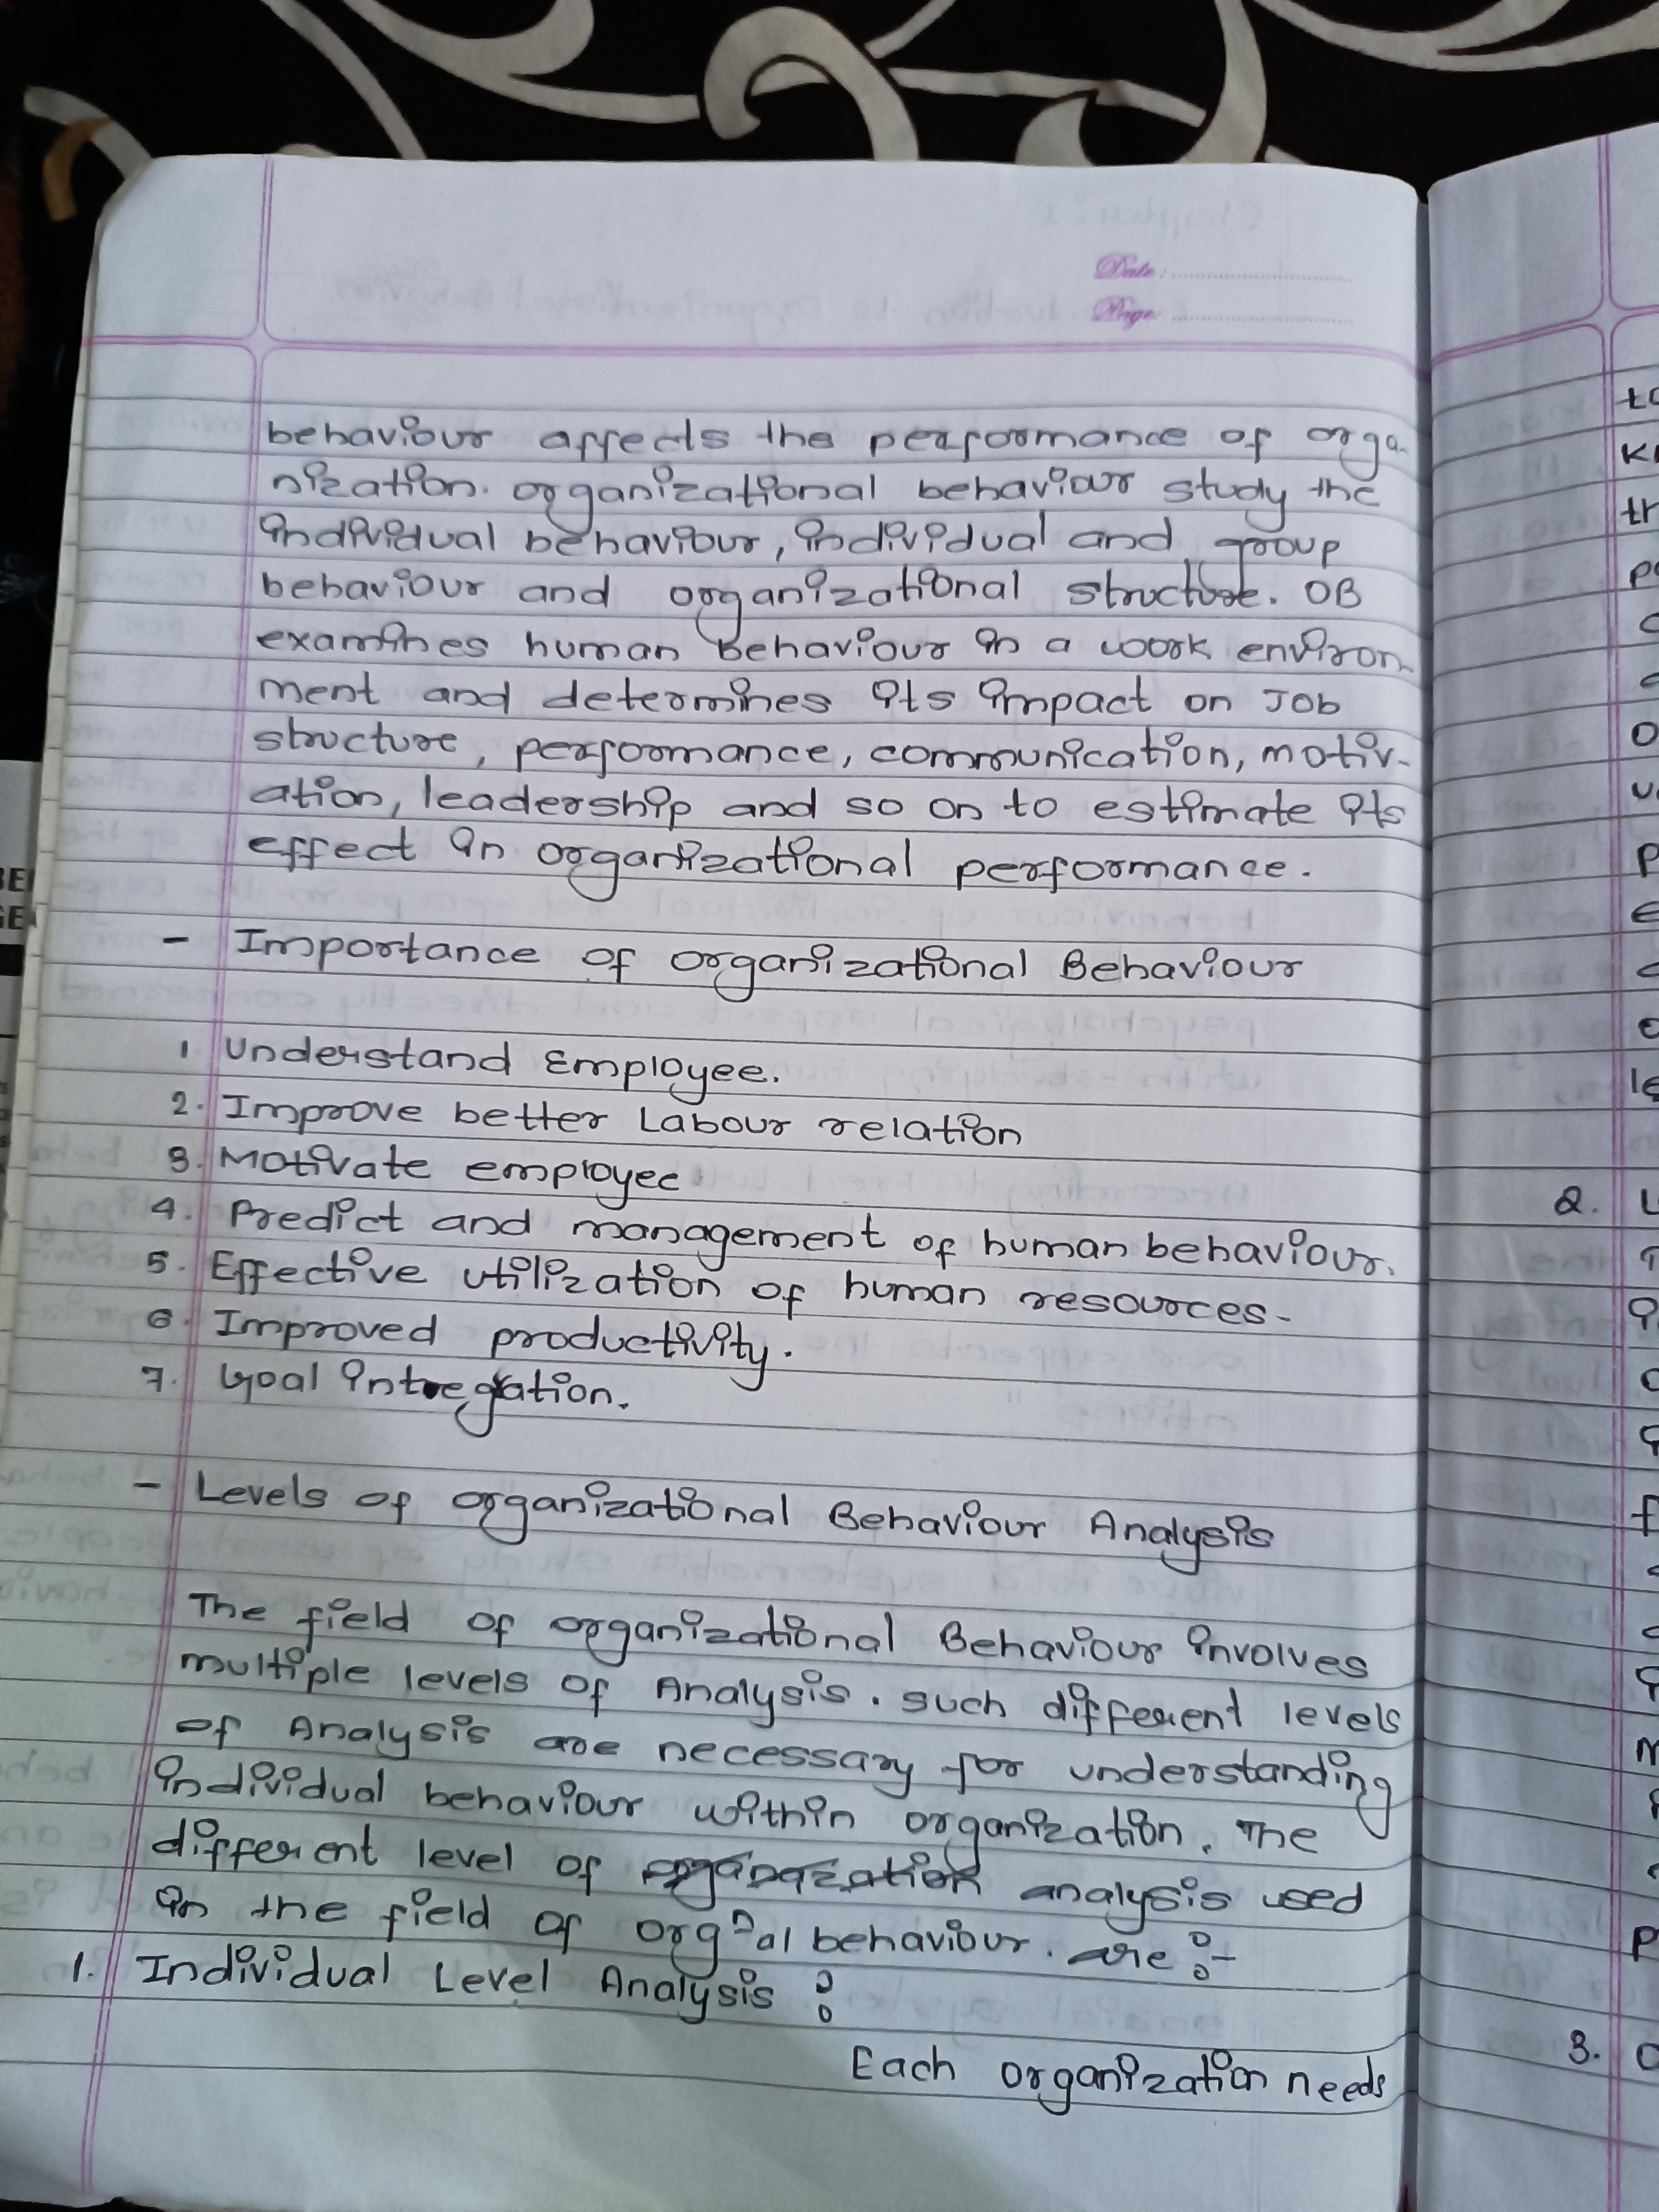 Date:
Page:
behaviour affects the performance of orga-
nization. organizational behaviour study the
individual behaviour, individual and group
behaviour and organizational structure. OB
examines human behaviour in a work environ-
ment and determines its impact on Job
structure, performance, communication, motiv-
ation, leadership and so on to estimate its
effect in organizational performance.
- Importance of organizational Behaviour
1. Understand Employee.
2. Improve better Labour relation
3. Motivate employee
4. Predict and management of human behaviour.
5. Effective utilization of human resources-
6. Improved productivity.
7. Goal integration.
- Levels of organizational Behaviour Analysis
The field of organizational Behaviour involves
multiple levels of Analysis. such different levels
of Analysis are necessary for understanding
individual behaviour within organization. The
different level of analysis used
in the field of orgⁿal behaviour. are :-
1. Individual Level Analysis :
Each organization needs
2.
3.